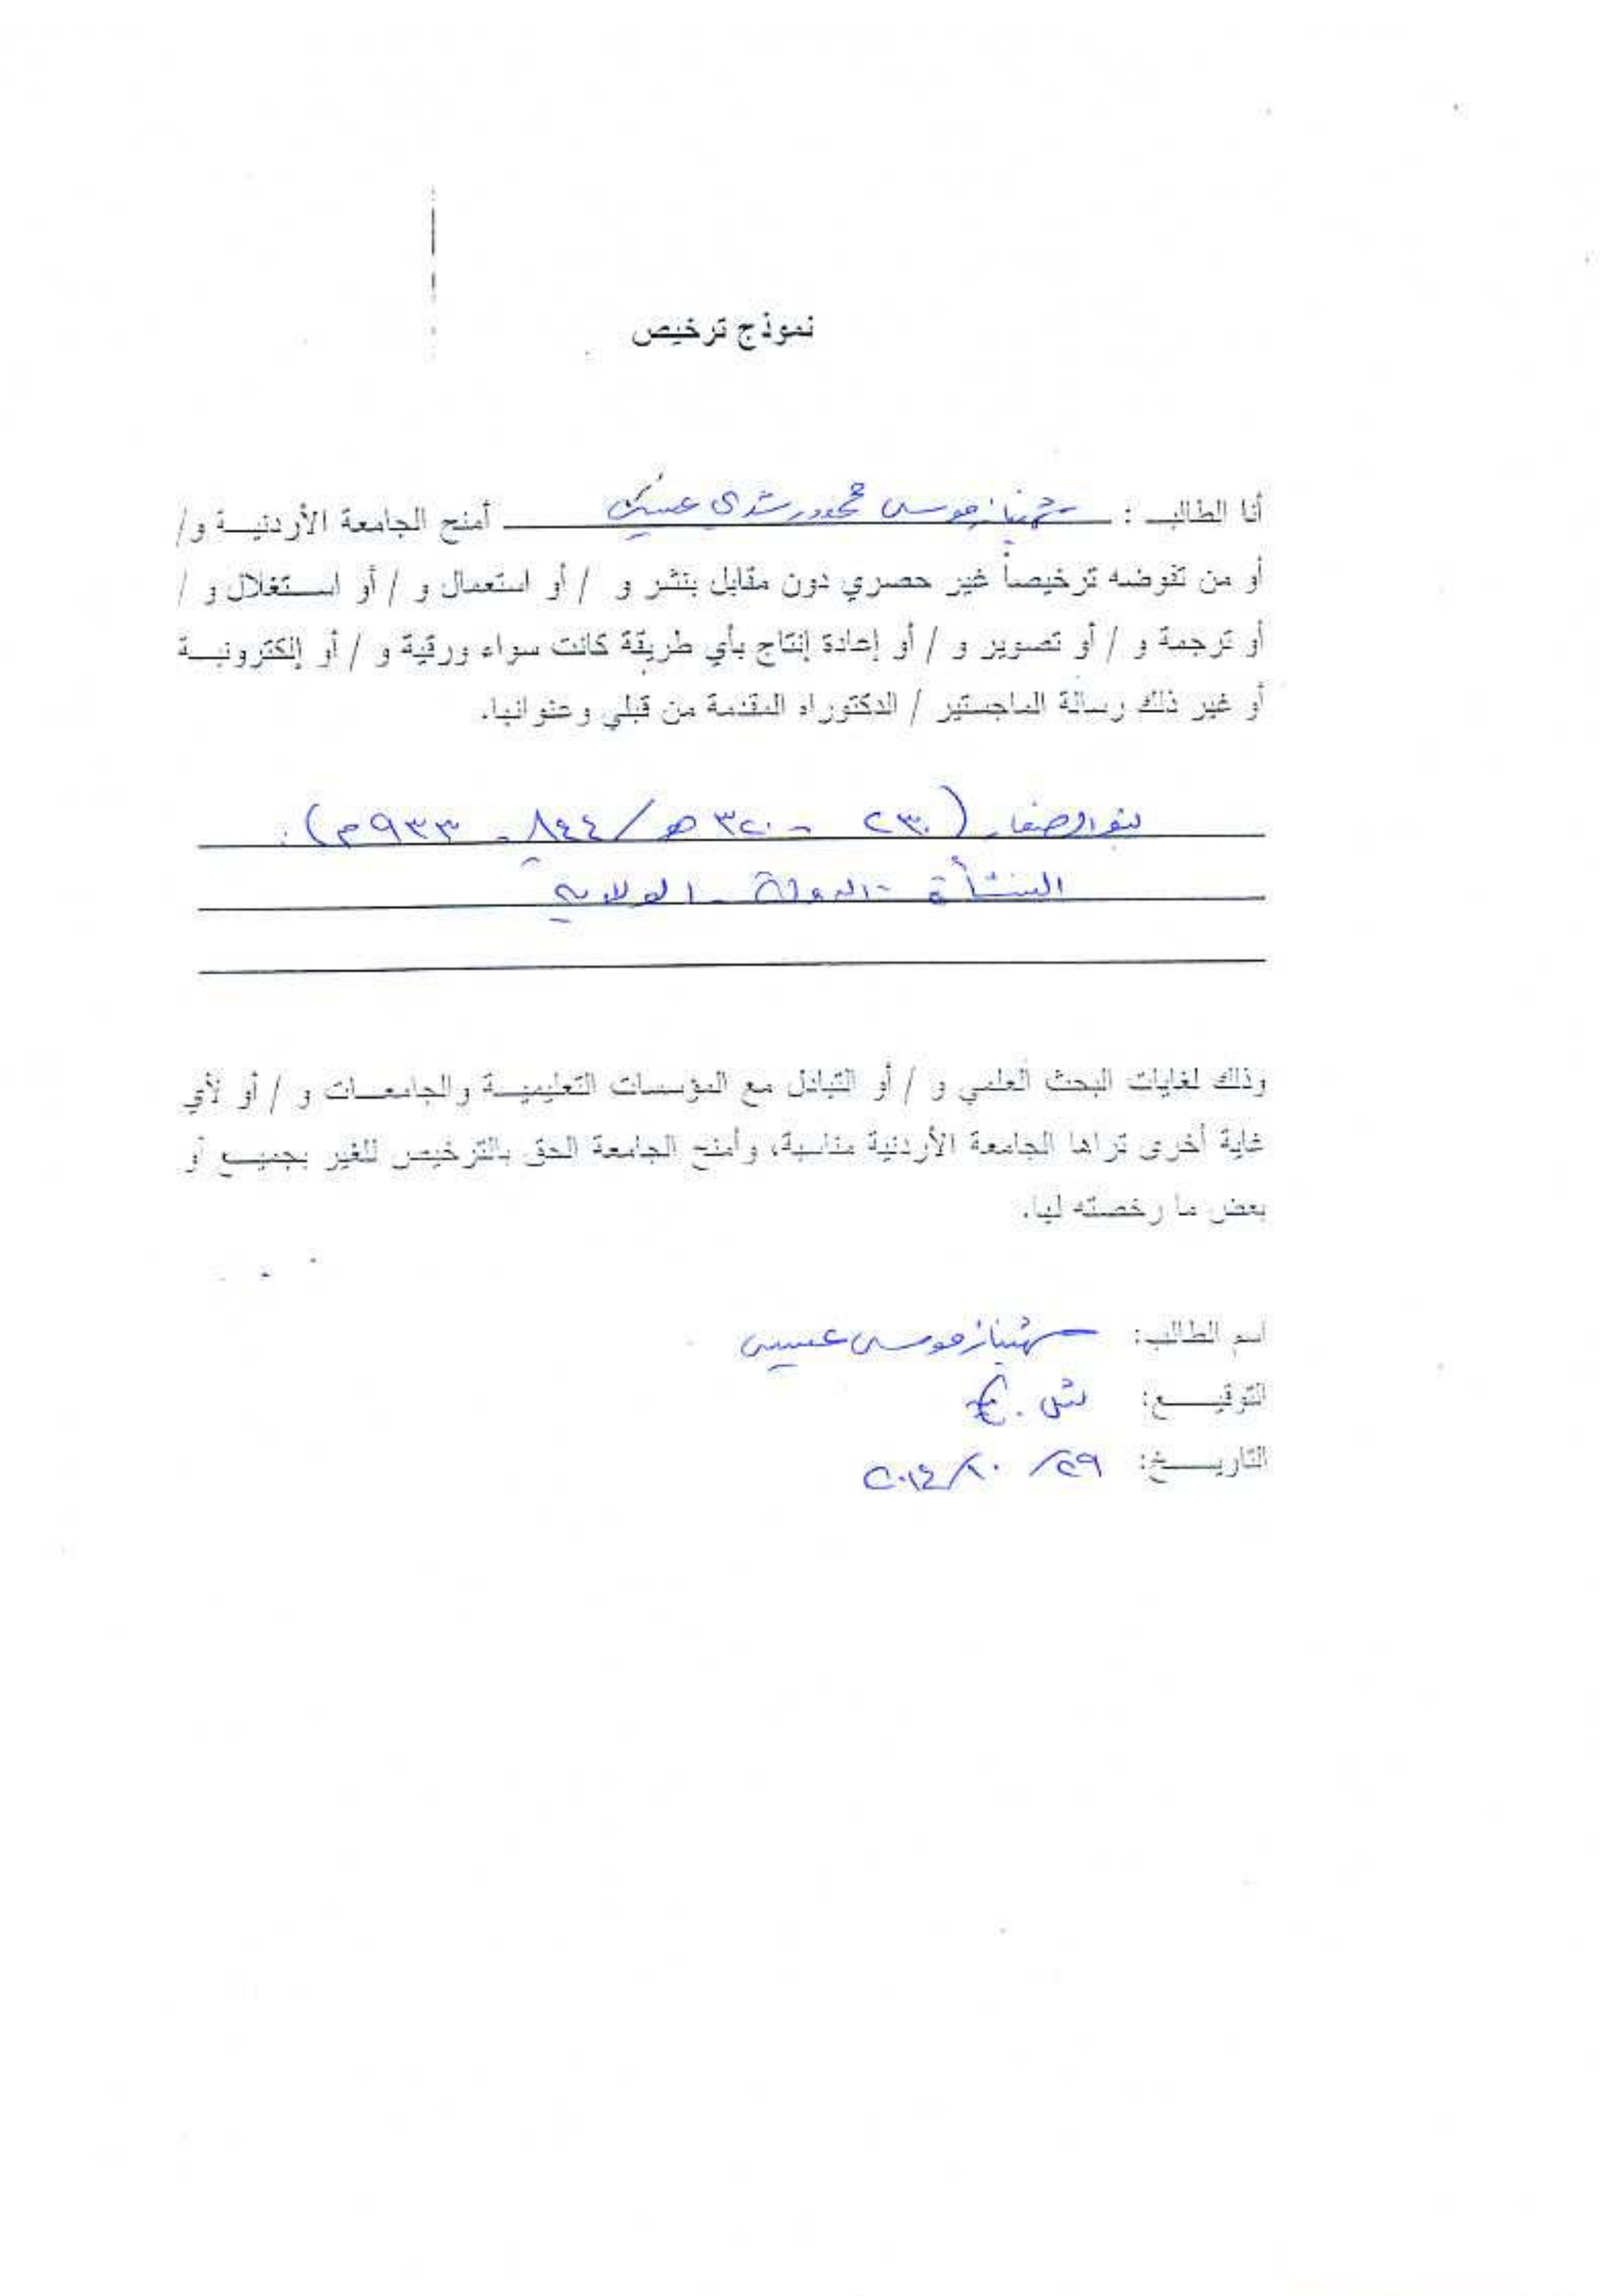 نموذج ترخيص
أنا الطالب : شهيناز موسى محمود رشدي أمنح الجامعة الأردنية و/
أو من تفوضه ترخيصاً غير حصري دون مقابل بنشر و / أو استعمال و / أو استغلال و /
أو ترجمة و / أو تصوير و / أو إعادة إنتاج بأي طريقة كانت سواء ورقية و / أو إلكترونية
أو غير ذلك رسالة الماجستير / الدكتوراه المقدمة من قبلي وعنوانها.
بنو الصفار (٢٣٠ - ٣٢٠ هـ/ ٨٤٤ - ٩٣٣م):
النشأة - الدولة - الولاية
وذلك لغايات البحث العلمي و / أو التبادل مع المؤسسات التعليمية والجامعات و / أو لأي
غاية أخرى تراها الجامعة الأردنية مناسبة، وأمنح الجامعة الحق بالترخيص للغير بجميع أو
بعض ما رخصته لها.
اسم الطالب: شهيناز موسى
التوقيع:
التاريخ: ٢٩/ ١٠/ ٢٠١٤